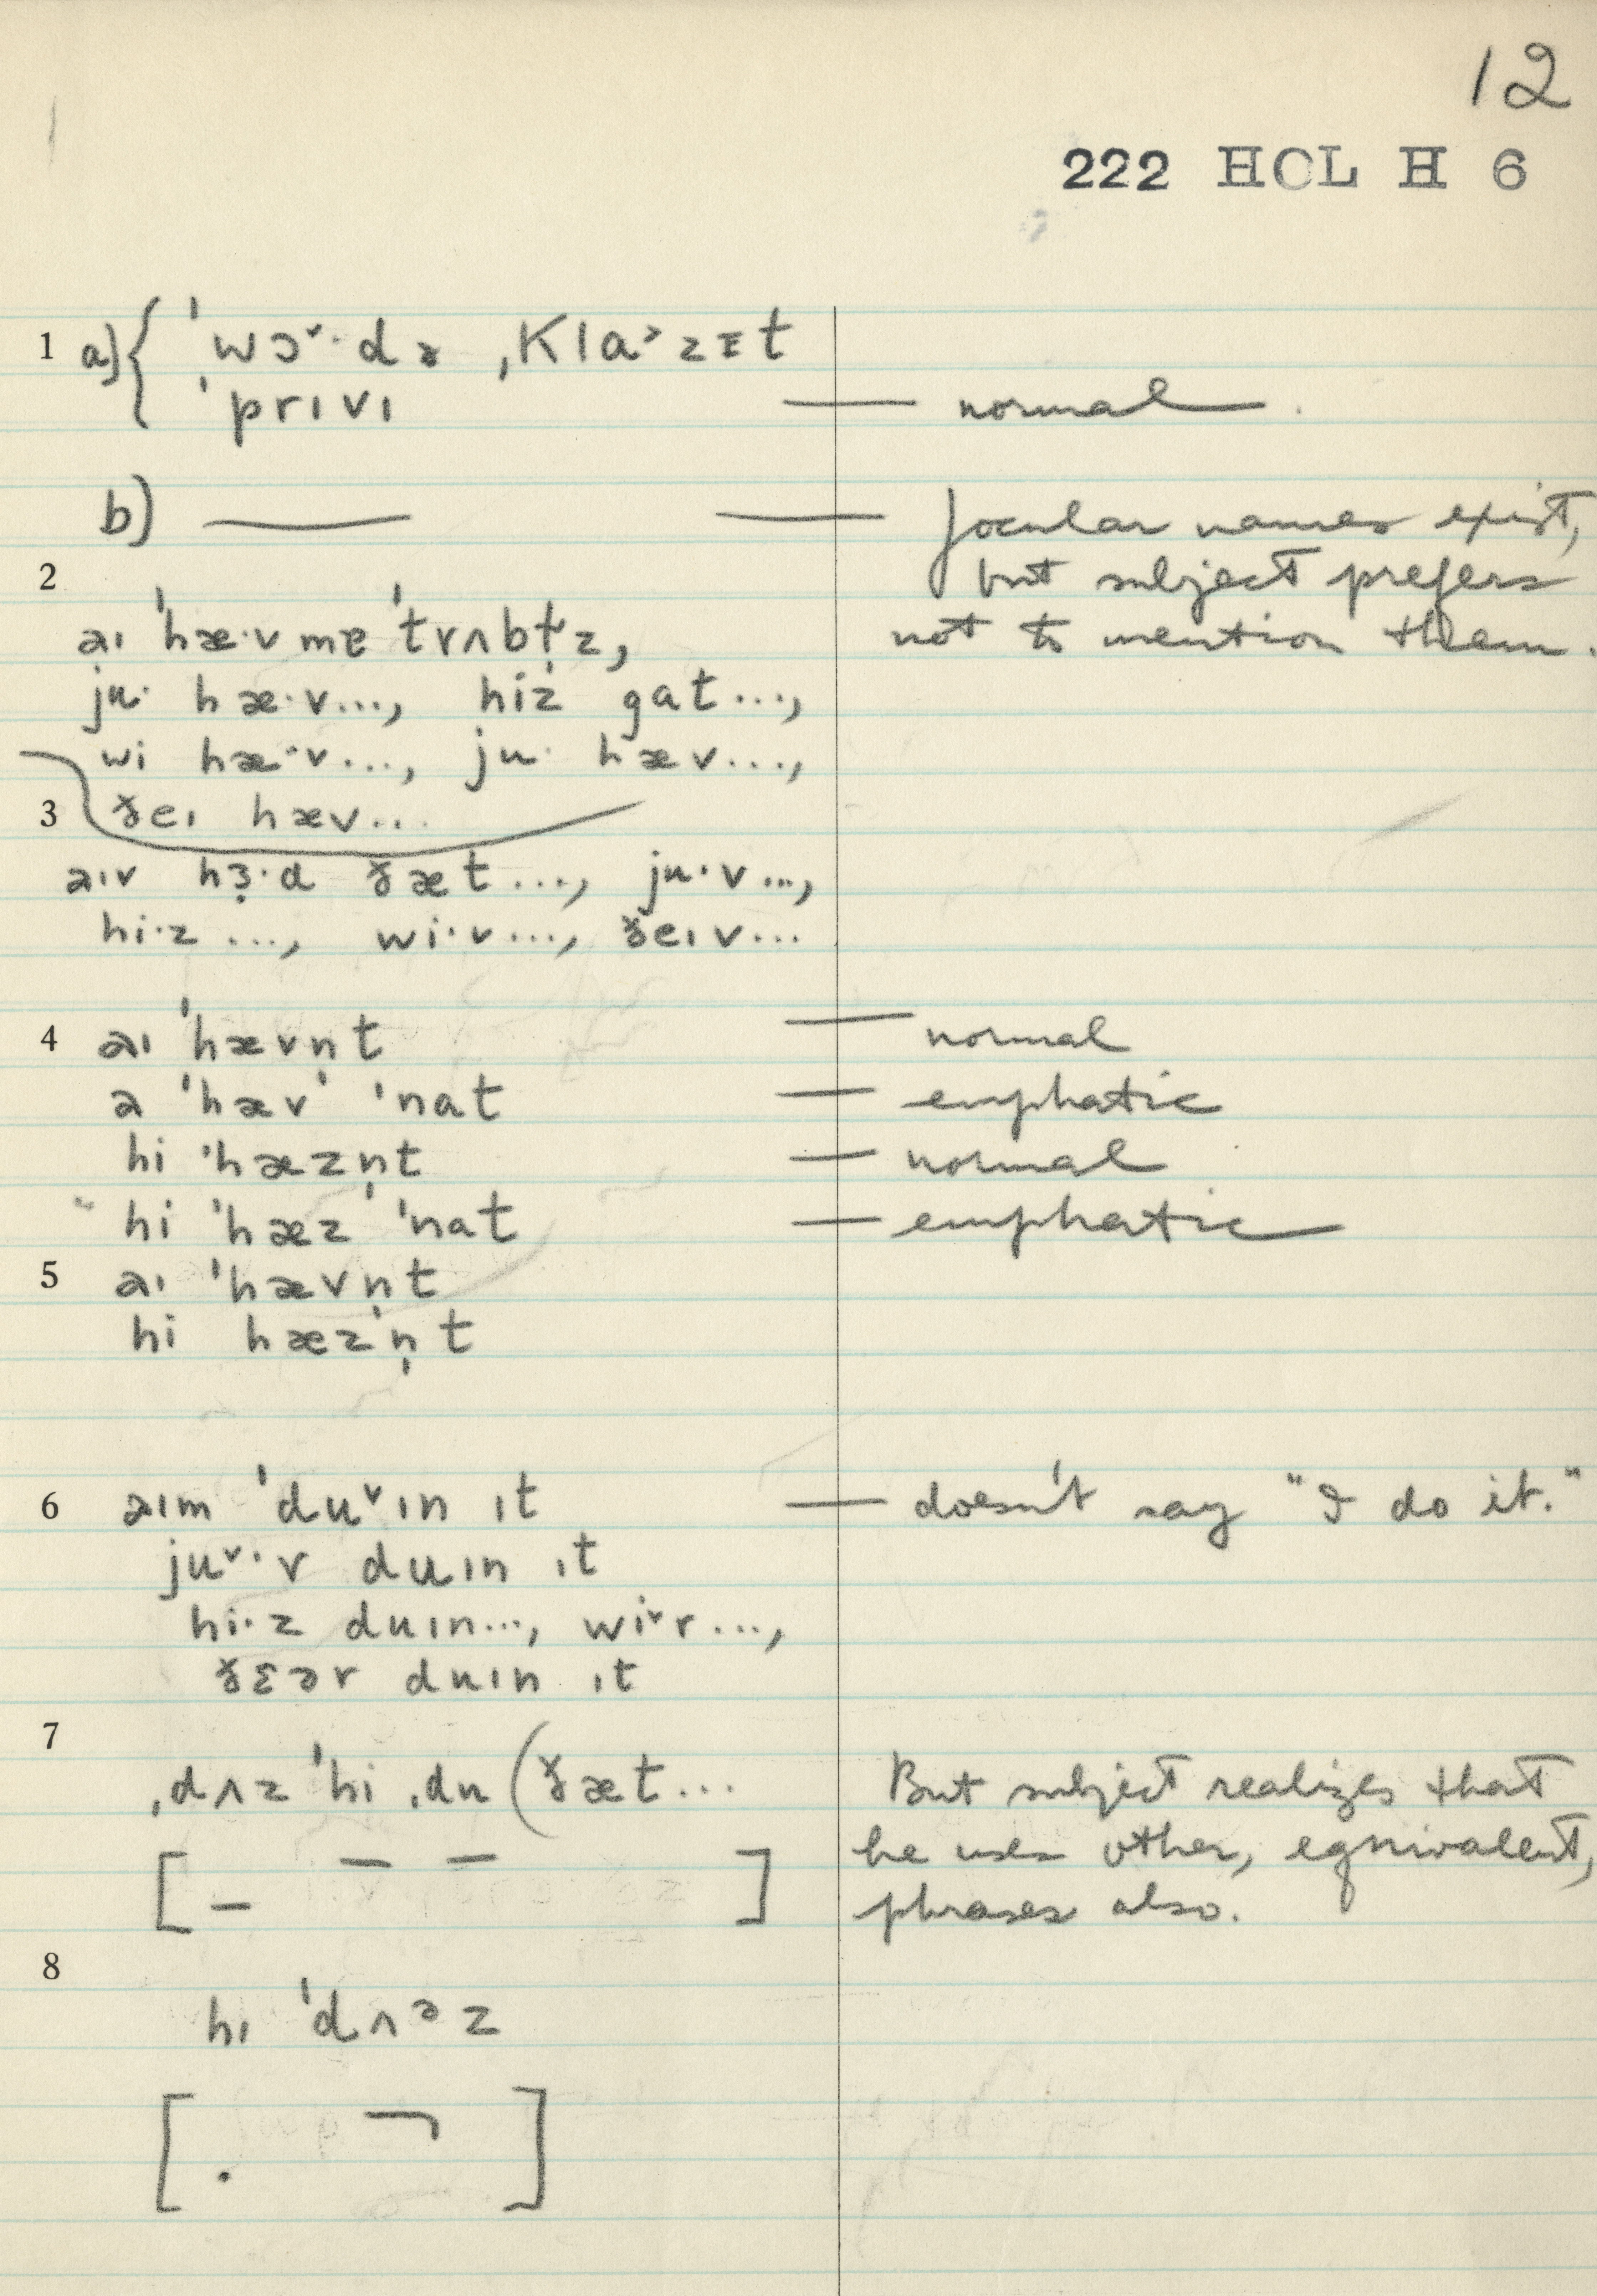 12
222 HCL H 6
1 a) { ˈwɔ˅·dɚ ˌKla˃zɪt
ˈprɪvɪ — normal.
b) — — Jocular names exist,
2 but subject prefers
aɪ ˈhæ·v mɐ ˈtrʌbl̩z, not to mention them.
ju· hæ·v..., hiz gat...,
wi hæ·v..., ju· hæv...,
3 ðeɪ hæv...
aɪv hɝ·d ðæt..., ju·v...,
hi·z ..., wi·v..., ðeɪv...
4 aɪ ˈhævn̩t — normal
a ˈhæv ˈnat — emphatic
hi ˈhæzn̩t — normal
hi ˈhæz ˈnat — emphatic
5 aɪ ˈhævn̩t
hi hæzn̩t
6 aɪm ˈdu˅ɪn ɪt — doesn't say "I do it."
ju˅·r duɪn ɪt
hi·z duɪn..., wi˅r...,
ðɛər duɪn ɪt
7
ˌdʌz ˈhi ˌdu (ðæt... But subject realizes that
[ – – – ] he uses other, equivalent,
phrases also.
8
hɪ ˈdʌᵊz
[ . ¬ ]